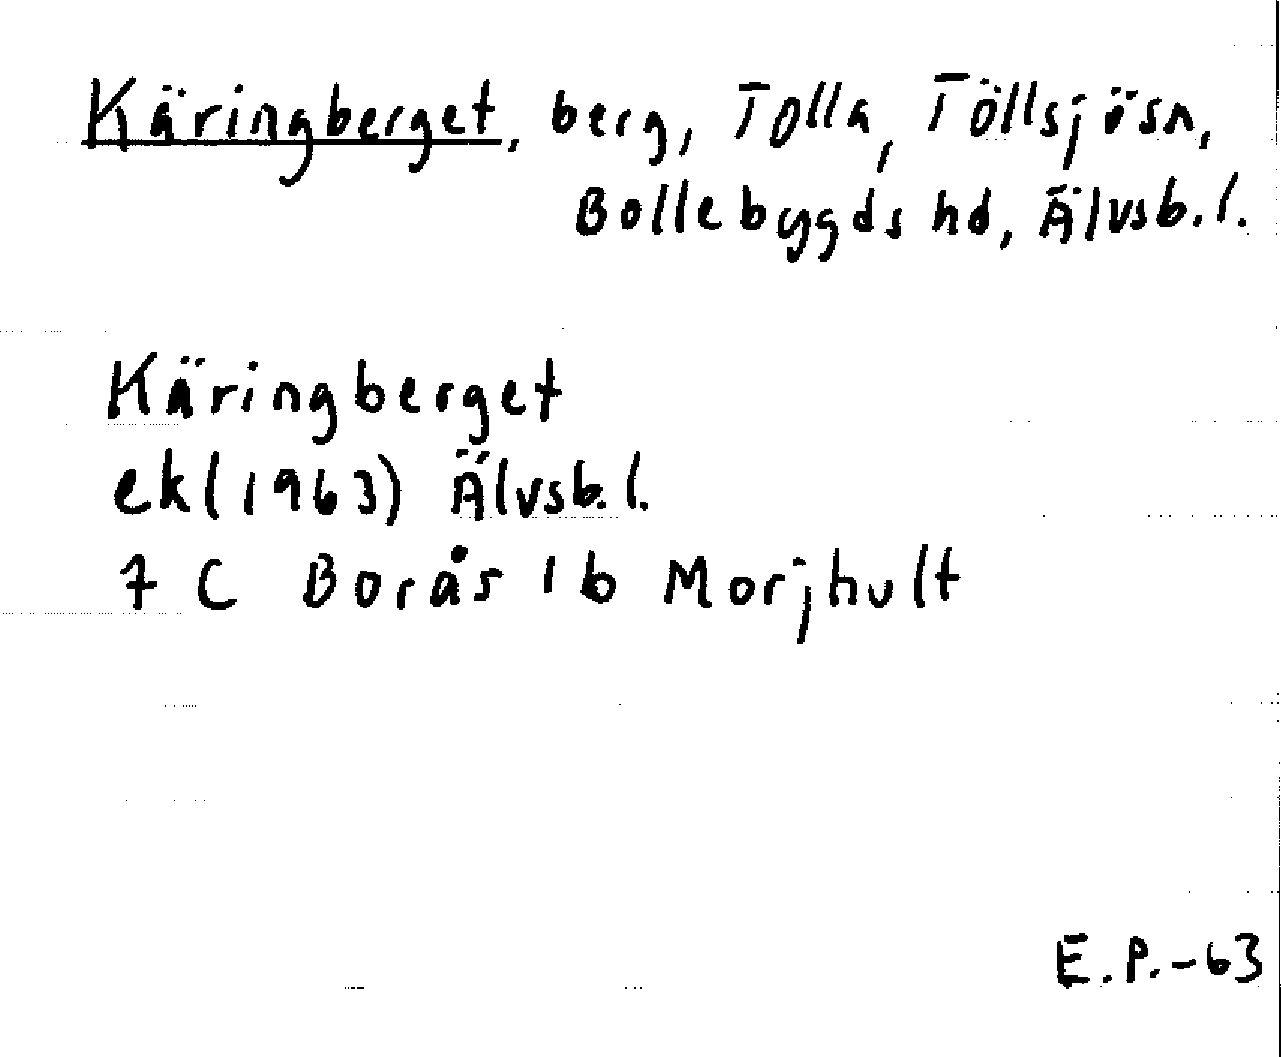 Käringberget, berg, Tolla, Töllsjösn,
Bollebygds hd, Älvsb.l.
Käringberget
ek(1963) Älvsb.l.
7 C Borås 1b Morjhult
E.P.-63